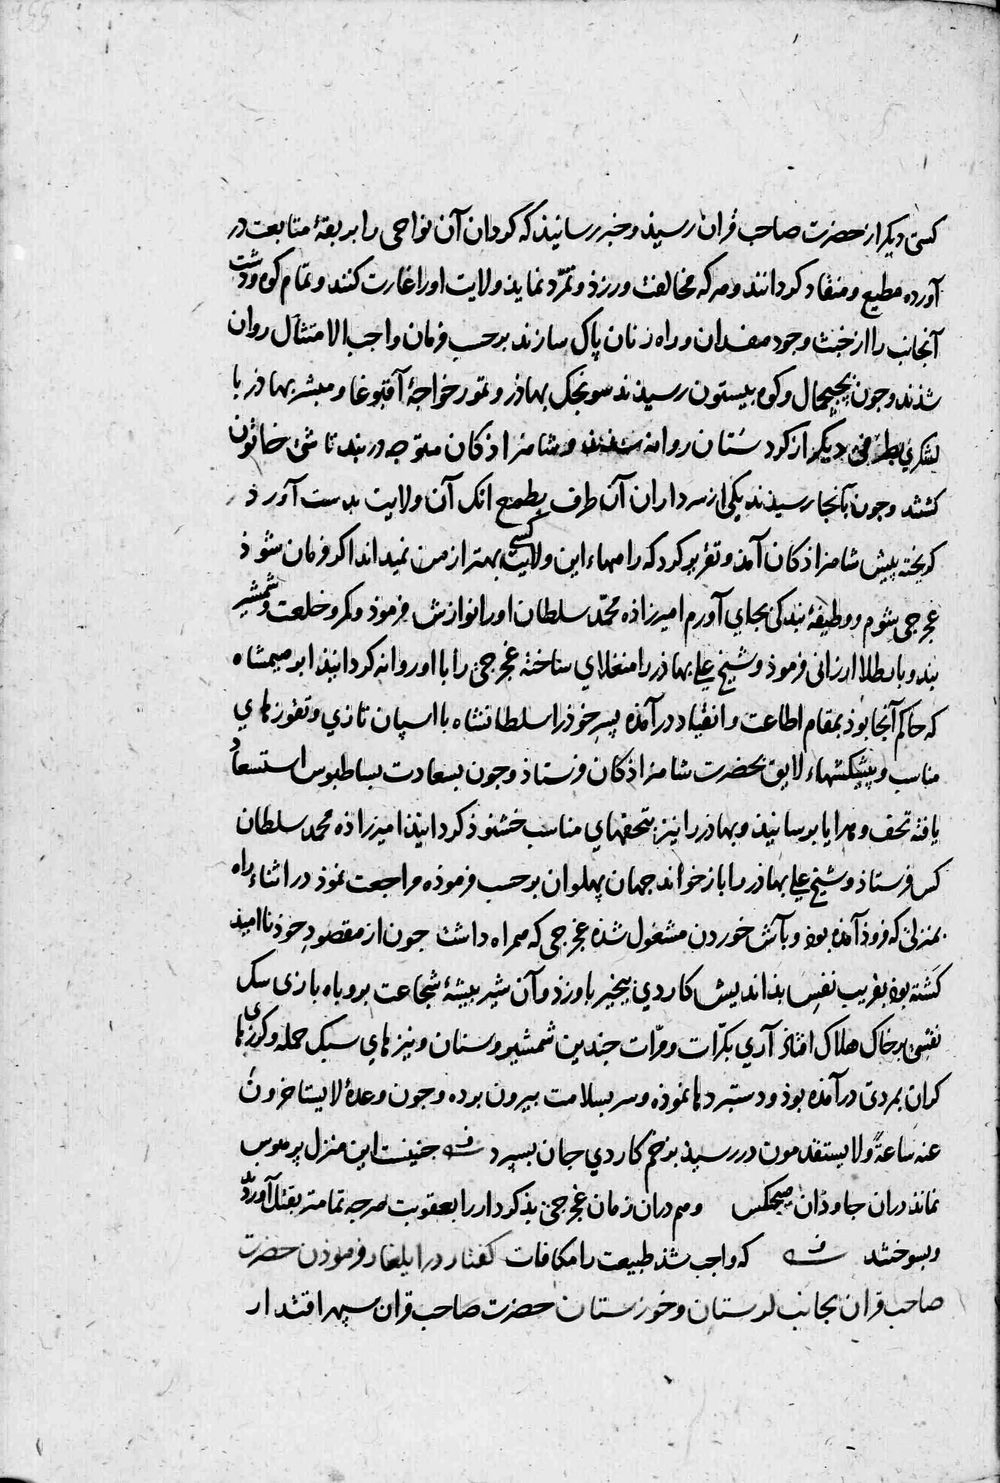 کسی دیکر از حضرت صاحب قران رسیذ و خبر رسانیذ که کردان آن نواحی را بربقهٔ متابعت در
آورده مطیع و منقاد کردانند و هرکه مخالفت ورزذ و تمرّد نمایذ ولایت اورا غارت کنند و تمام کوه و دشت
آنجانب را از خبث وجود مفسدان و راه زنان پاک سازند برحسب فرمان واجب الامتثال روان
شذند و جون بچمچال و کوه بیستون رسیذند سونجک بهاذر و تمور خواجهٔ آقبوغا و مبشر بهاذر با
لشکری بطرفی دیکر از کردستان روانه شذند و شاهزاذکان متوجه دربند تاشی خاتون
کشتند و جون بآنجا رسیذند یکی از سرداران آن طرف بطمع انک آن ولایت بدست آورد
کریخته پیش شاهزاذکان آمذ و تقریر کرد که راههاء این ولایت کسی بهتر از من نمیداند اکر فرمان شوذ
غجرجی شوم و وظیفهٔ بندکی بجای آورم امیرزاذه محمّد سلطان اورا نوازش فرموذ و کمر و خلعت و شمشیر
بند و بار طلا ارزانی فرموذ و شیخ علی بهاذر را منغلای ساخته غجرجی را با او روانه کردانیذ ابرهیمشاه
که حاکم آنجا بوذ بمقام اطاعت و انقیاد درآمذه پسر خوذ را سلطانشاه با اسپان تازی و تقوزهای
مناسب و پیشکشهاء لایق بحضرت شاهزاذکان فرستاذ و جون بسعادت بساطبوس استسعاد
یافته تحف و هدایا برسانیذ و بهاذر را نیز بتحفهای مناسب خشنوذ کردانیذ امیرزاذه محمد سلطان
کس فرستاذ و شیخ علی بهاذر را باز خواند جهان پهلوان برحسب فرموذه مراجعت نموذ در اثناء راه
بمنزلی که فروذ آمذه بوذ و بآش خوردن مشغول شذه غجرجی که همراه داشت جون از مقصود خوذ نا امیذ
کشته بوذ بفریب نفس بذ اندیش کاردی بیخبر باو زذ و آن شیر بیشهٔ شجاعت بروباه بازی سک
نفسی بر خاک هلاک افتاذ آری بکرّات و مرّات جندین شمشیر و سنان و نیزهای سبک حمله و کرزهای
کران بمردی درآمذه بوذ و دستبردها نموذه و سر بسلامت بیرون برده و جون وعدهٔ لا یستاخرون
عنه ساعةً ولا یستقدمون در رسیذ بزخم کاردی جان بسپرد جنینست این منزل پر هوس
نماند دران جاوذان هیجکس و هم دران زمان غجرجی بذکردار را بعقوبت هرچه تمامتر بقتل آوردند
و بسوختند که واجب شذ طبیعت را مکافات کفتار در ایلغار فرموذن حضرت
صاحب قران بجانب لرستان و خوزستان حضرت صاحب قران سپهر اقتدار